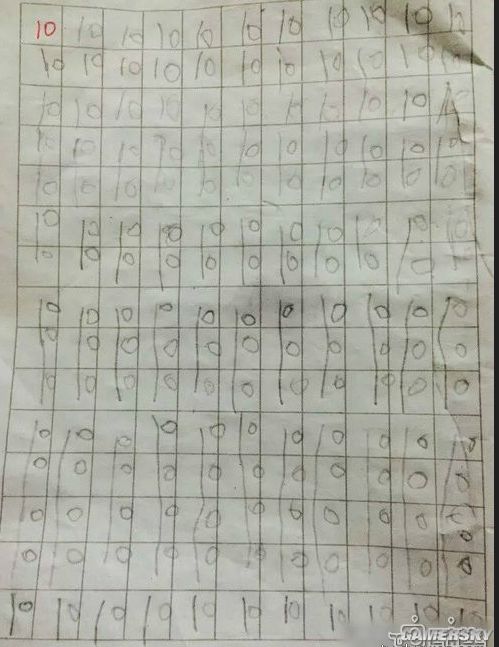 10 10 10 10 10 10 10 10 10 10 10
10 10 10 10 10 10 10 10 10 10 10
10 10 10 10 10 10 10 10 10 10 10
10 10 10 10 10 10 10 10 10 10 10
10 10 10 10 10 10 10 10 10 10 10
10 10 10 10 10 10 10 10 10 10 10
10 0 0 0 0 0 0 0 0 0 0
10 10 10 10 10 10 10 10 10 10 10
0 0 0 0 0 0 0 0 0 0 0
0 0 0 0 0 0 0 0 0 0 0
10 10 10 10 10 10 10 10 10 10 10
0 0 0 0 0 0 0 0 0 0 0
0 0 0 0 0 0 0 0 0 0 0
0 0 0 0 0 0 0 0 0 0 0
10 10 10 10 10 10 10 10 10 10 10
GAMERSKY